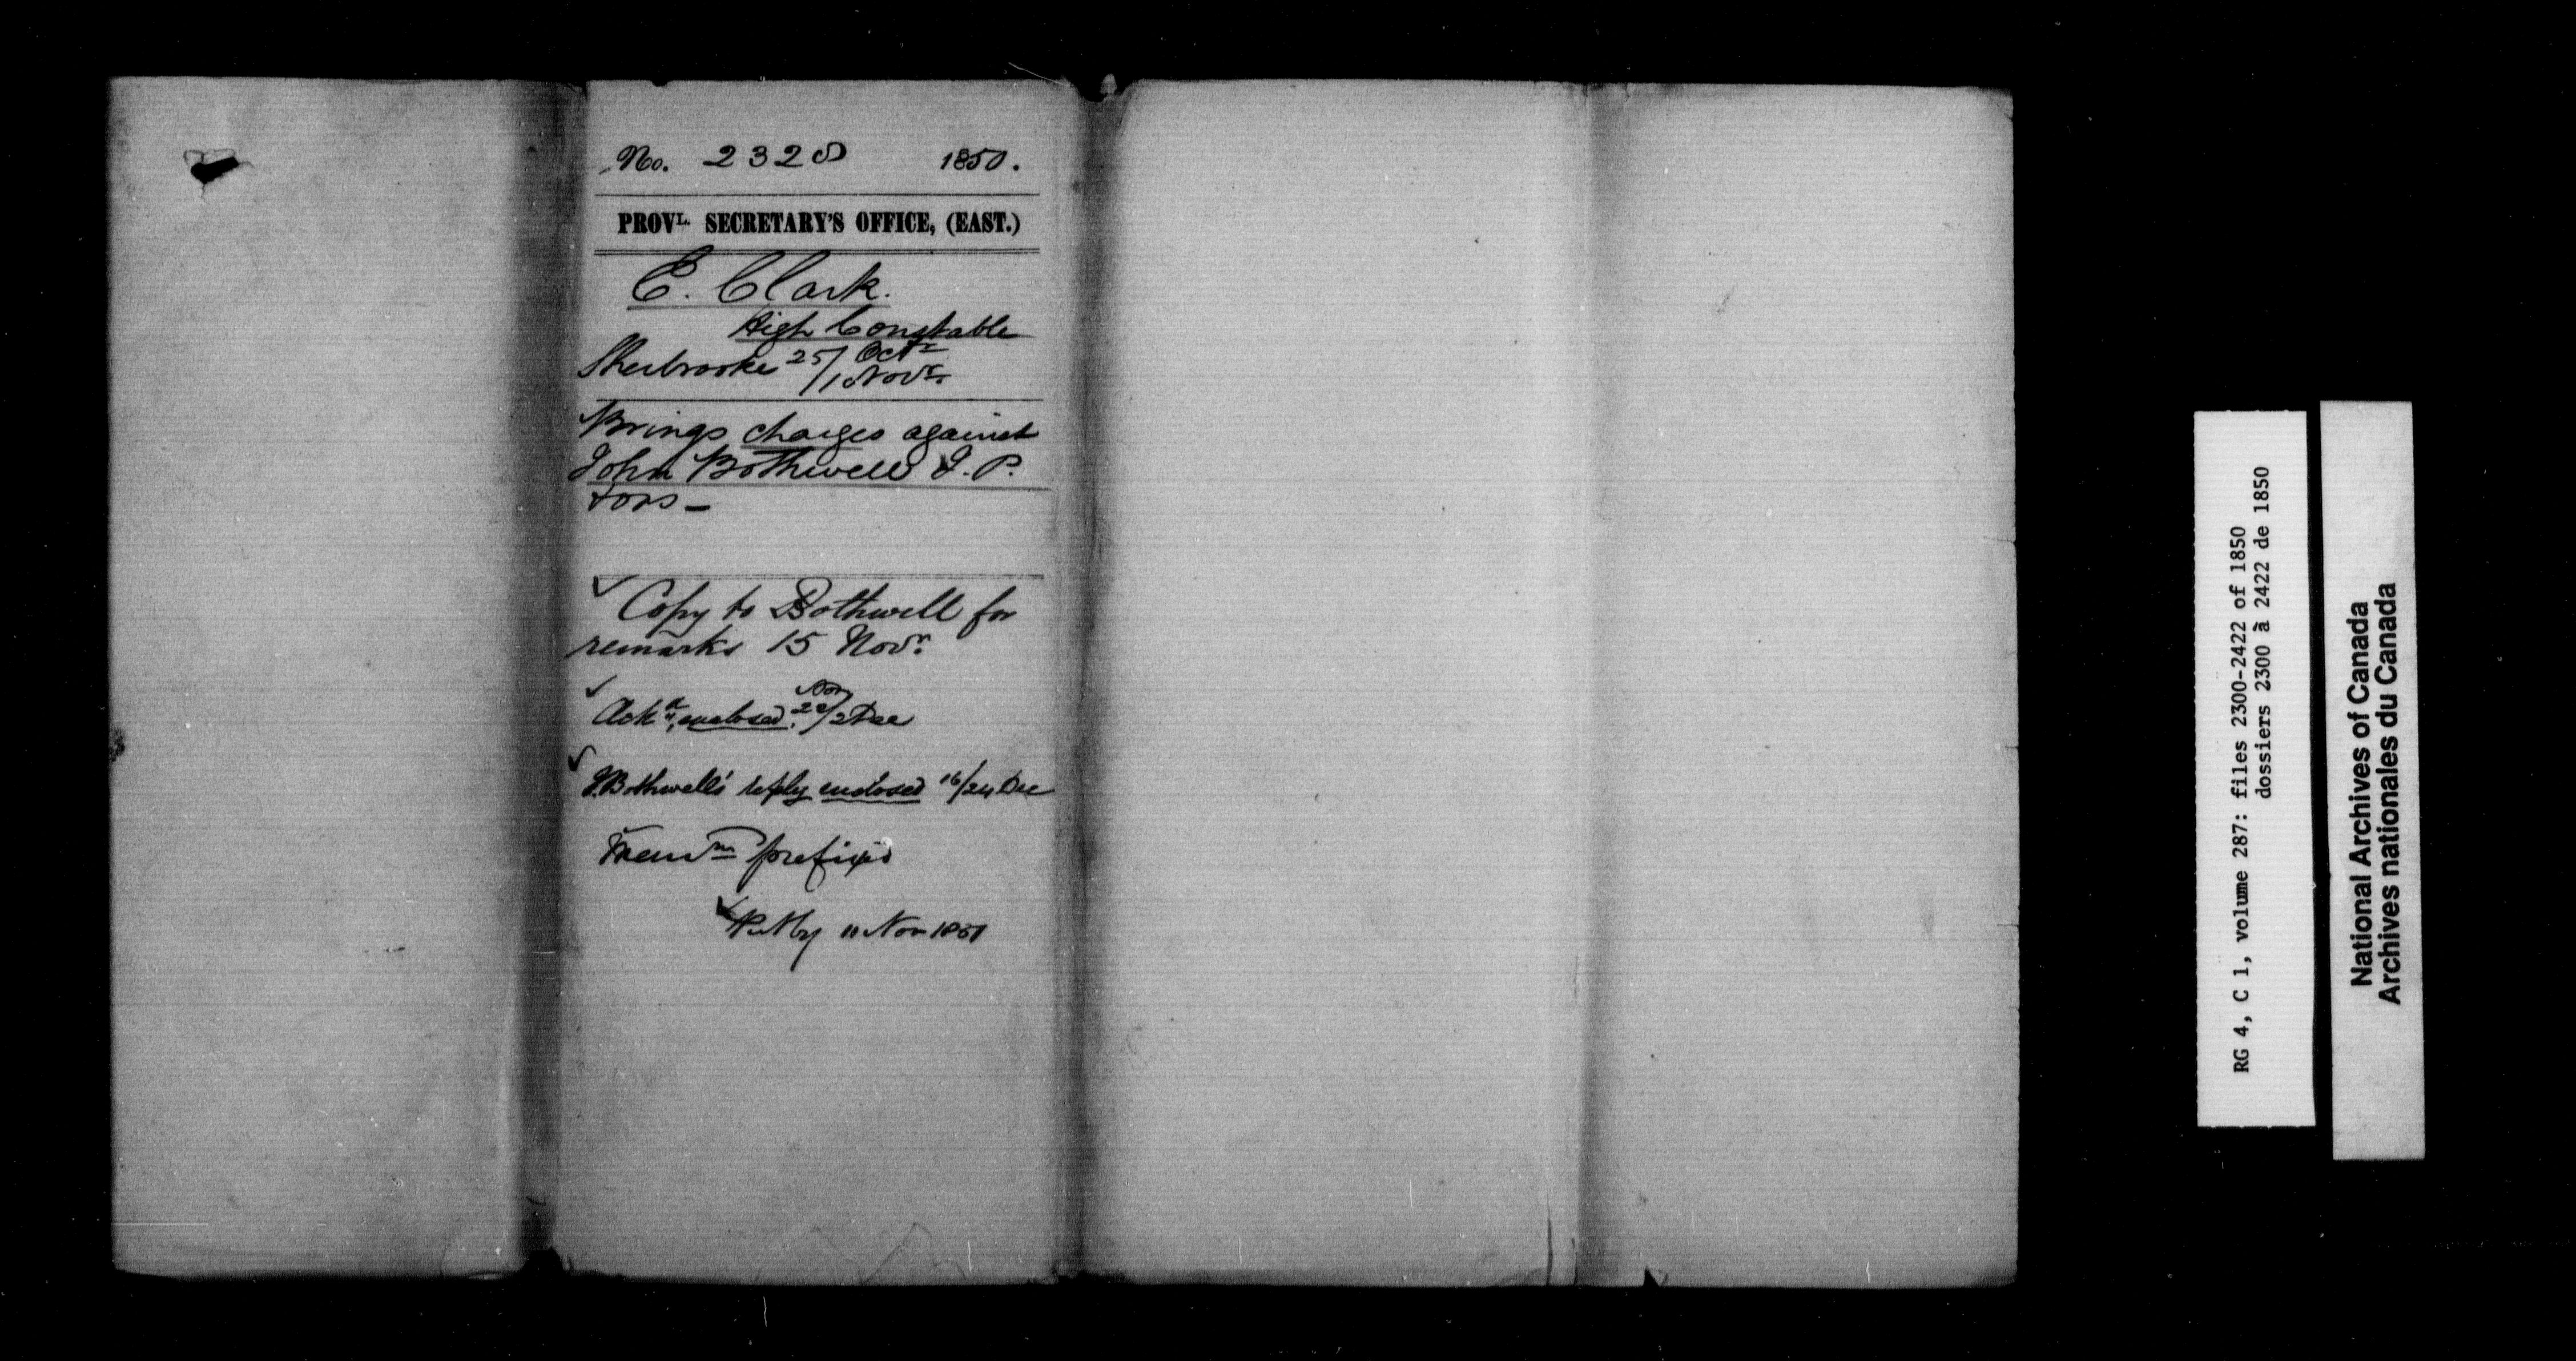 No. 2328 1850.
PROVL. SECRETARY'S OFFICE, (EAST.)
E. Clark.
High Constable
Sherbrooke 25/ Octr
/1 Novr.
Brings charges against
John Bothwell J. P.
Copy to Bothwell for
remarks 15 Novr.
Nov
enclosed. /2 Dec
J. Bothwell's reply enclosed 16/24 Dec
prefixed
Put by 11 Nov
RG 4, C 1, volume 287: files 2300-2422 of 1850
dossiers 2300 à 2422 de 1850
National Archives of Canada
Archives nationales du Canada